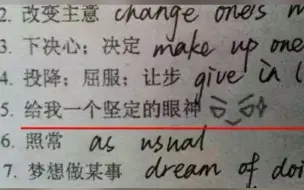 2. 改变主意 change one's m
3. 下决心；决定 make up one
4. 投降；屈服；让步 give in
5. 给我一个坚定的眼神
6. 照常 as usual
7. 梦想做某事 dream of doi